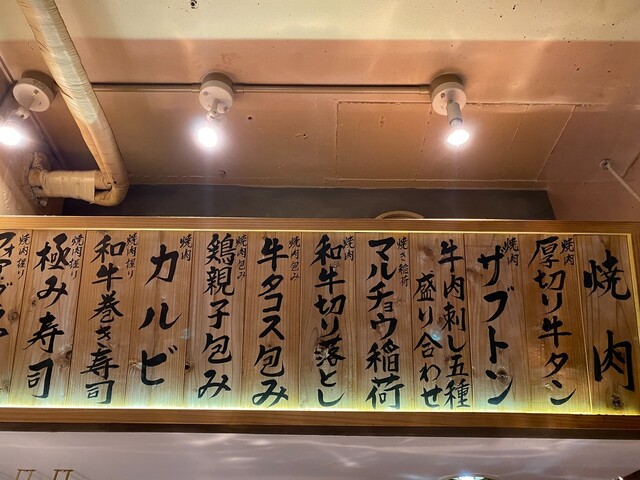 焼肉
焼肉
厚切り牛タン
焼肉
ザブトン
牛肉刺し五種
盛り合わせ
焼き稲荷
マルチョウ稲荷
焼肉
和牛切り落とし
焼肉包み
牛タコス包み
焼肉包み
鶏親子包み
焼肉
カルビ
焼肉握り
和牛巻き寿司
焼肉握り
極み寿司
焼肉握り